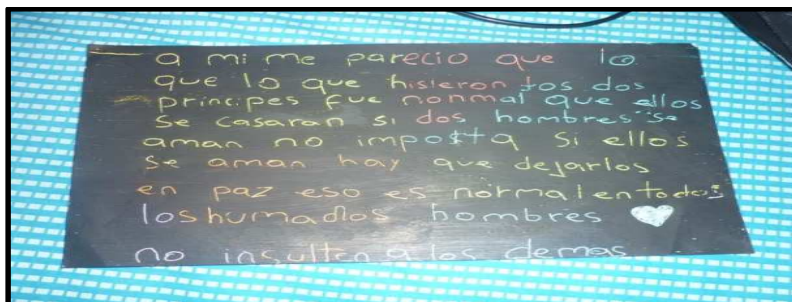 a mi me parecio que lo
que lo que hisieron los dos
principes fue nonmal que ellos
se casaran si dos hombres se
aman no importa si ellos
se aman hay que dejarlos
en paz eso es normal en todos
los humados hombres
no insulten a los demas